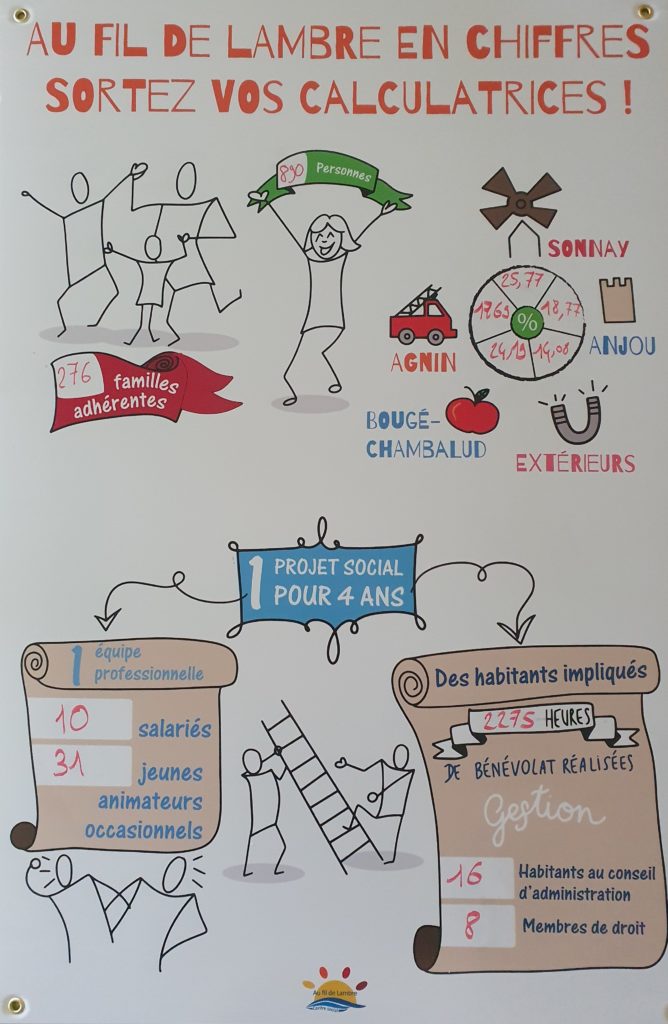 AU FIL DE LAMBRE EN CHIFFRES
SORTEZ VOS CALCULATRICES !
890 Personnes
276 familles
adhérentes
SONNAY
25,77
17,69
18,77
%
24,19
14,08
AGNIN
ANJOU
BOUGÉ-
CHAMBALUD
EXTÉRIEURS
1 PROJET SOCIAL
POUR 4 ANS
1 équipe
professionnelle
10 salariés
31 jeunes
animateurs
occasionnels
Des habitants impliqués
2275 HEURES
DE BÉNÉVOLAT RÉALISÉES
Gestion
16 Habitants au conseil
d'administration
8 Membres de droit
Au fil de Lambre
Centre social